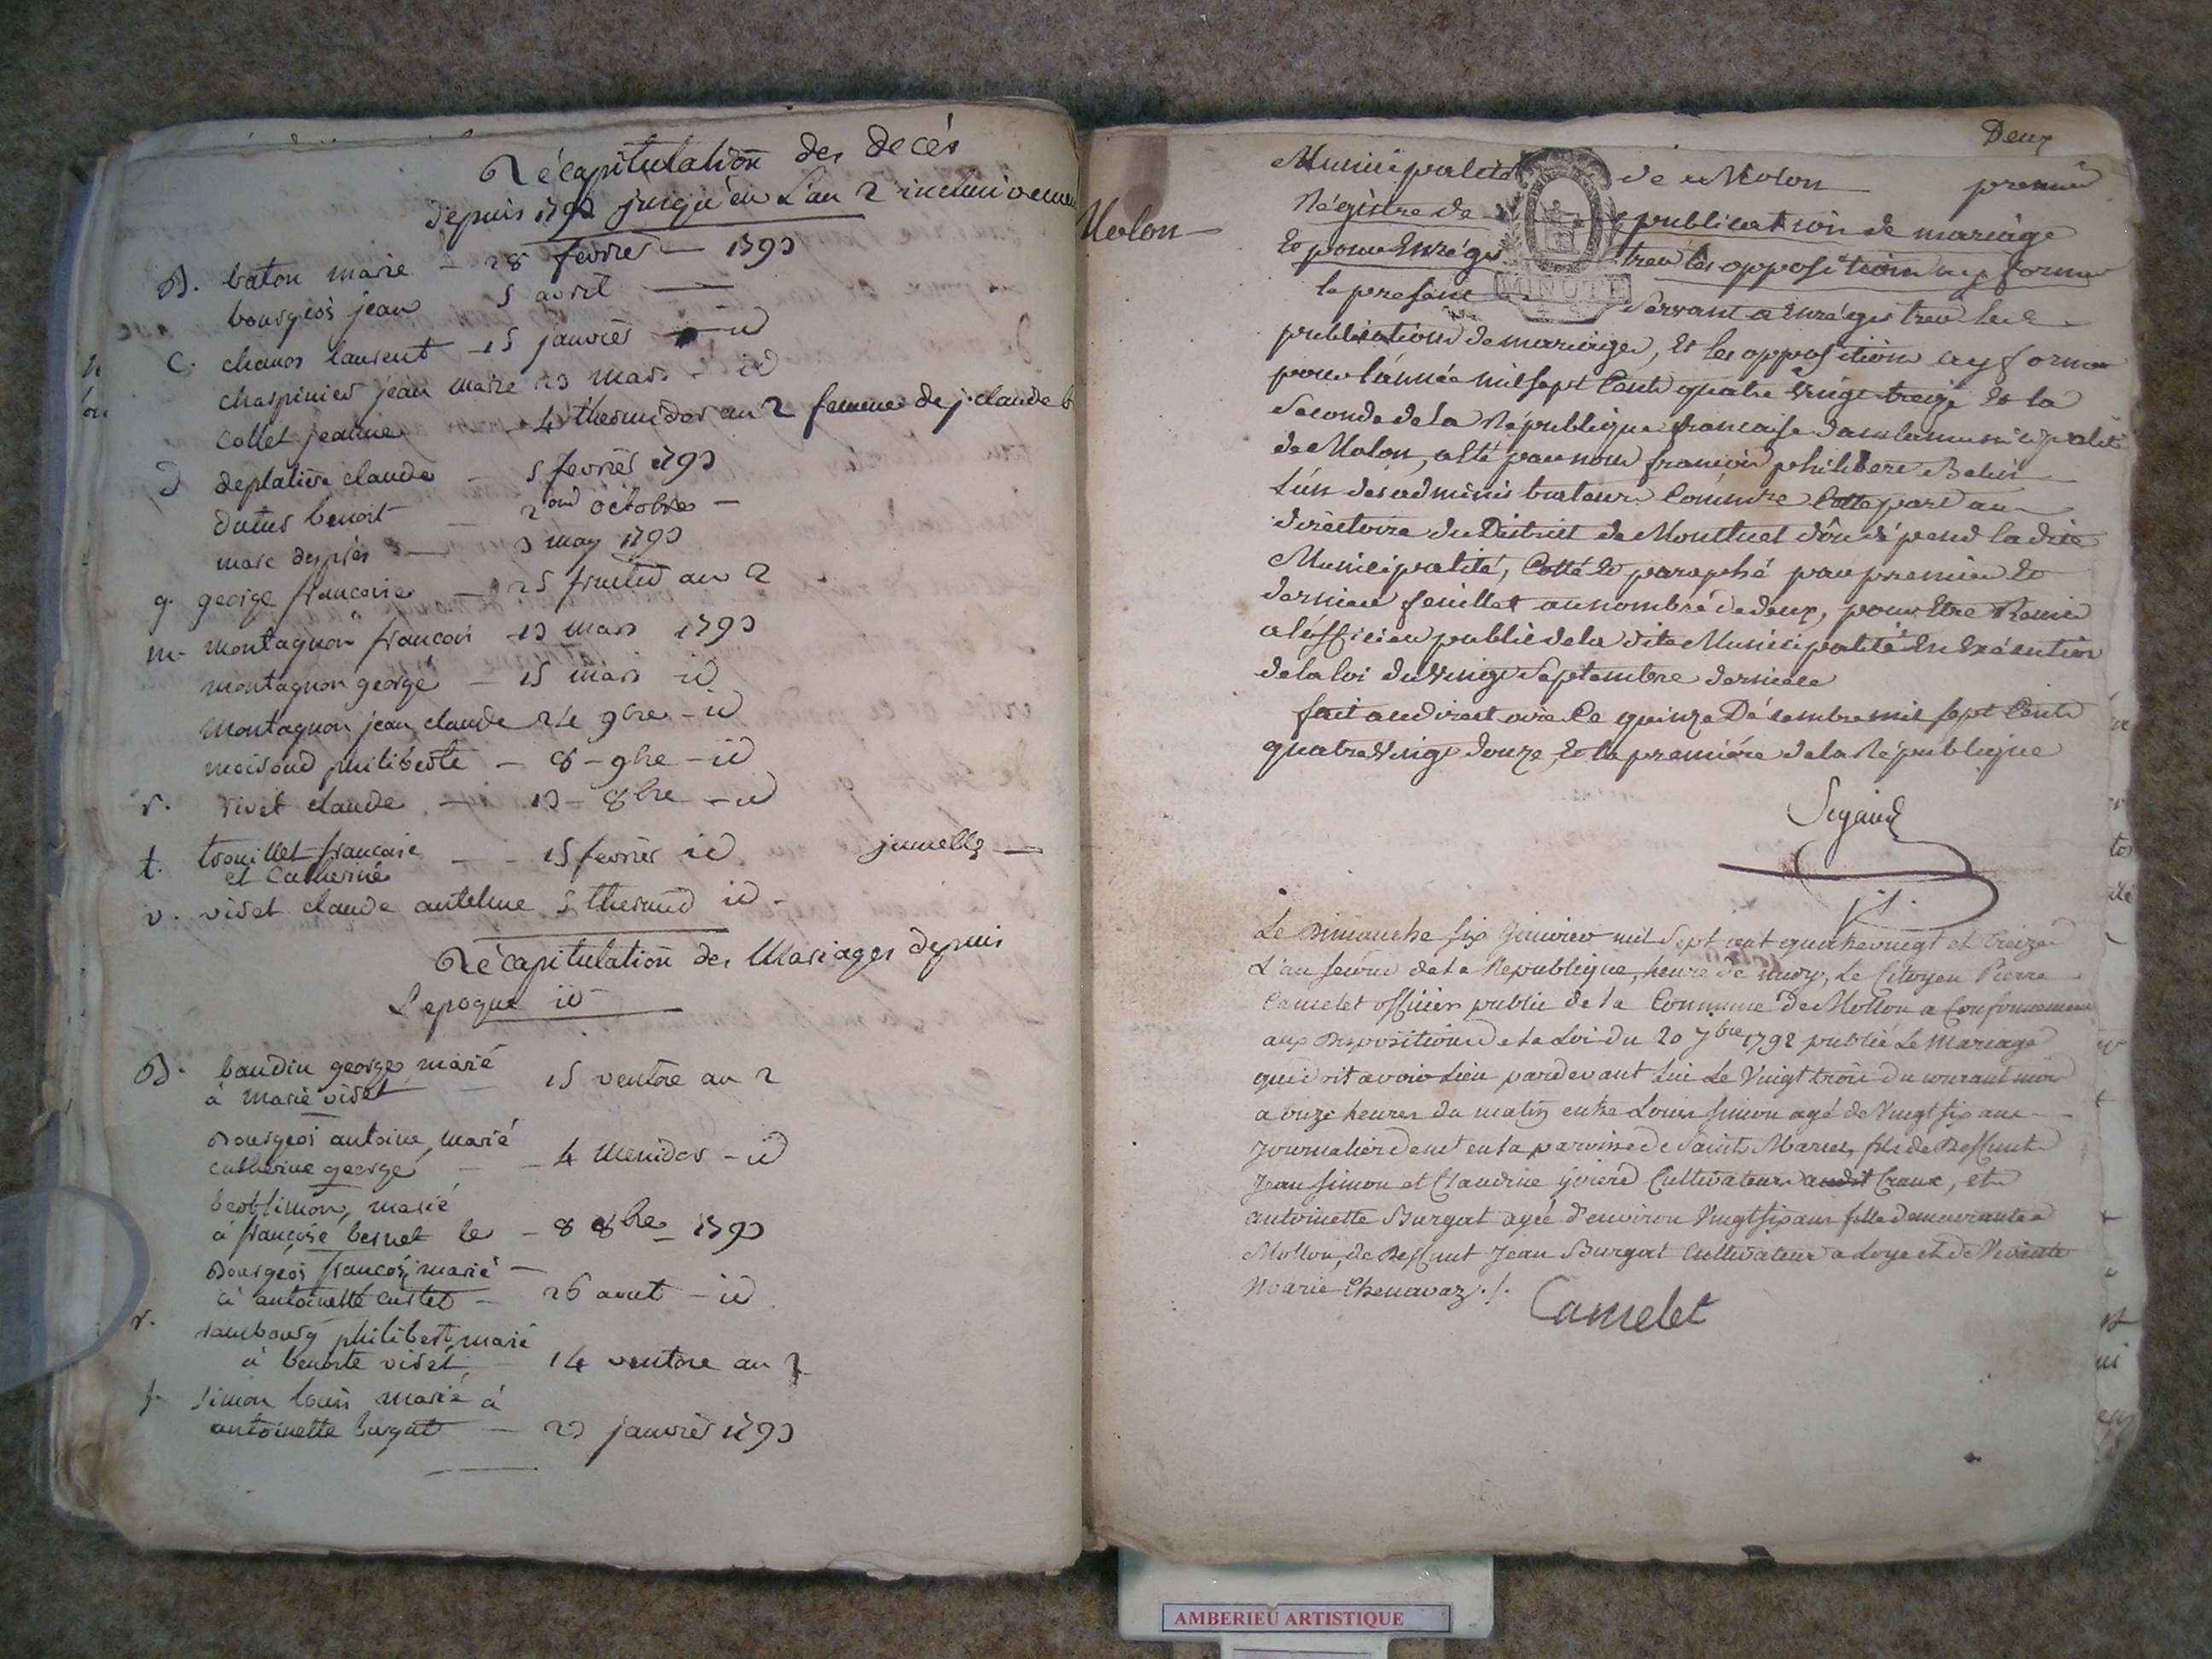 Récapitulation des decés
depuis 1793 jusqu'en L'an 2 inclusivement
B. baton marie - 28 fevrier - 1793
bourgeois jean 5 avril
C. chanos laurent - 15 janvier - id
charpinier jean marie 23 mars - id
Collet jeanne - 4 thermidor an 2 femme de j. claude b
d deplatière claude - 5 fevrier 1793
dutus benoit - 2ond octobre -
marc despiés - 3 may 1793
g. george francoise - 25 fructid an 2
m- montagnon francois 13 mars 1793
montagnon george - 15 mars id
montagnon jean claude 24 9bre - id
moisond philiberte - 8 - 9bre - id
r. rivet claude - 13 - 8bre - id
t. trouillet francoise - - 15 fevrier id jumelles -
et Catherine
v. viret claude antelme 5 thermid id -
Récapitulation des Mariages depuis
L'epoque id
B. baudin george marié
à marie viret - 15 ventose an 2
Bourgeois antoine, marié
catherine george - - 4 Messidor - id
berot simon, marié
à françoise bernet le - 8 8bre - 1793
Bourgeois francois marié -
à antoinette custet - 26 aout - id
r. rambourg philibert marié
à benoite viret, 14 ventose an 2
s. simon louis marié à
antoinette burgat - 23 janvier 1793
Deux
Municipalité de Molon premier
Molon -
Régistre de publication de mariage
Et pour Enrégistrer les opposition a y former
MINUTE
le present Servant a Enrégistrer les
publications de mariages, Et les opposition a y former
pour l'année mil sept Cents quatre Vingt treize Et la
Seconde de la République francaise dans la municipalité
de Molon, a été par nous francois philibert Belin
L'un des administrateurs Commissaire part au
directoire du District de Montluel d'ou dépend la dite
Municipalité, Cotté Et paraphé par premier Et
dernier feuillet au nombre de deux, pour Etre Remis
a l'officier public de la dite Municipalité En Exécution
de la loi du Vingt Septembre dernier
fait au directoire Ce quinze Décembre mil sept Cents
quatre Vingt douze, Et la premiére de la République
Sigaud
Le Dimanche six Janvier mil Sept cent quatrevingt et treize
L'an second de la Republique, heure de midy, Le Citoyen Pierre
Camelet officier public de la Commune de Mollon a Conformement
aux Dispositions de la Loi du 20 7bre 1792 publié Le Mariage
qui doit avoir Lieu pardevant Lui Le Vingt trois du courant mois
a onze heures du matin entre Louis Simon agé de Vingt six ans
Journalier demt en la paroisse de Saint Marcel, fils de Deffunt
Jean Simon et Claudine Cultivateurs audit Crane, et
antoinette Burgat agée d'environ Vingt six ans fille demeurante a
Mollon, de Deffunt Jean Burgat Cultivateur a Loye et de Vivante
Marie Chenavaz ./.
Camelet
AMBERIEU ARTISTIQUE